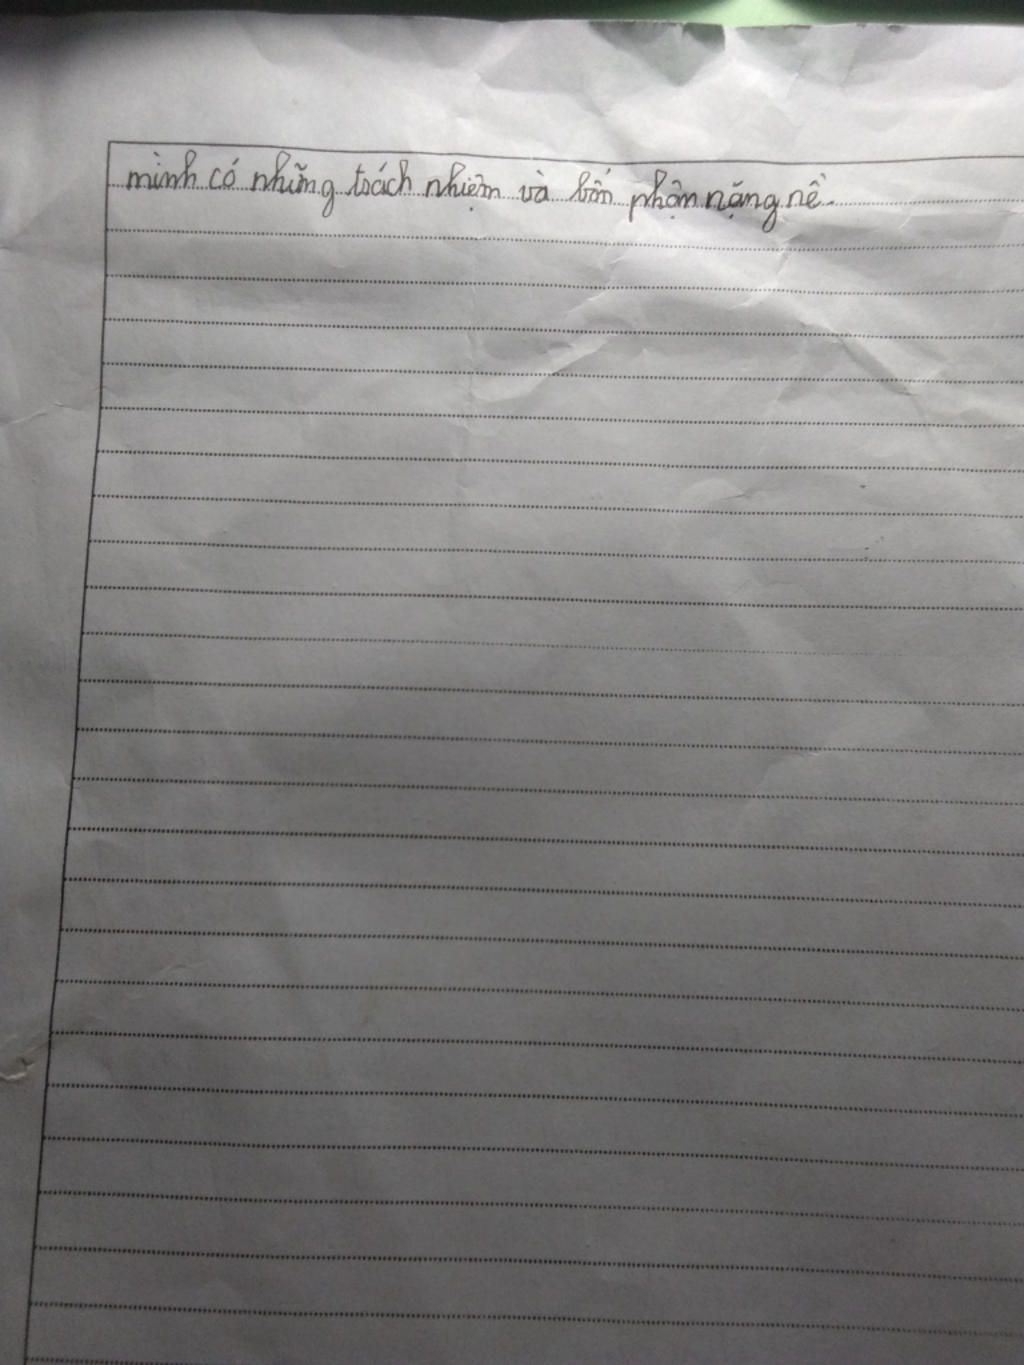 mình có những trách nhiệm và bổn phận nặng nề.